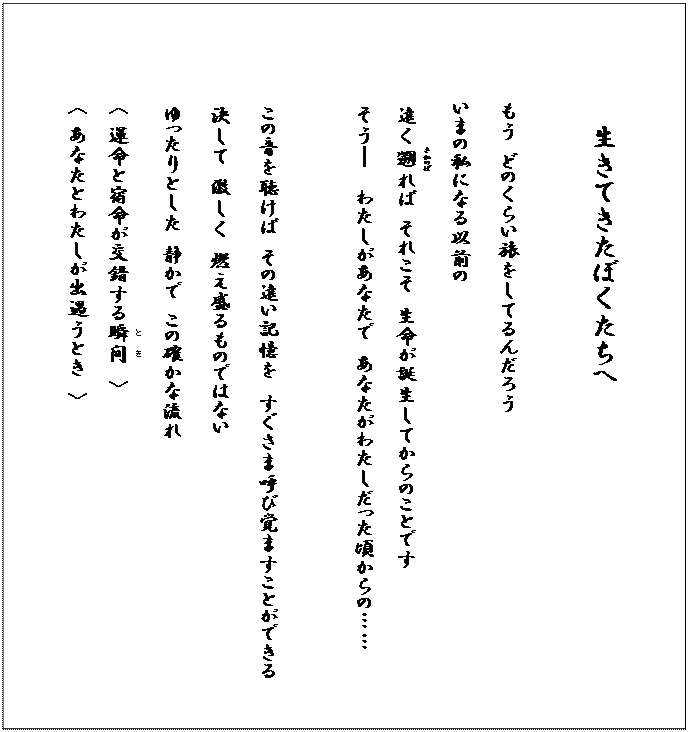 生きてきたぼくたちへ
もう　どのくらい旅をしてるんだろう
いまの私になる以前の
遠く遡れば　それこそ　生命が誕生してからのことです
そう―　わたしがあなたで　あなたがわたしだった頃からの……
この音を聴けば　その遠い記憶を　すぐさま呼び覚ますことができる
決して　激しく　燃え盛るものではない
ゆったりとした　静かで　この確かな流れ
〈 運命と宿命が交錯する瞬間 〉
〈 あなたとわたしが出遇うとき 〉